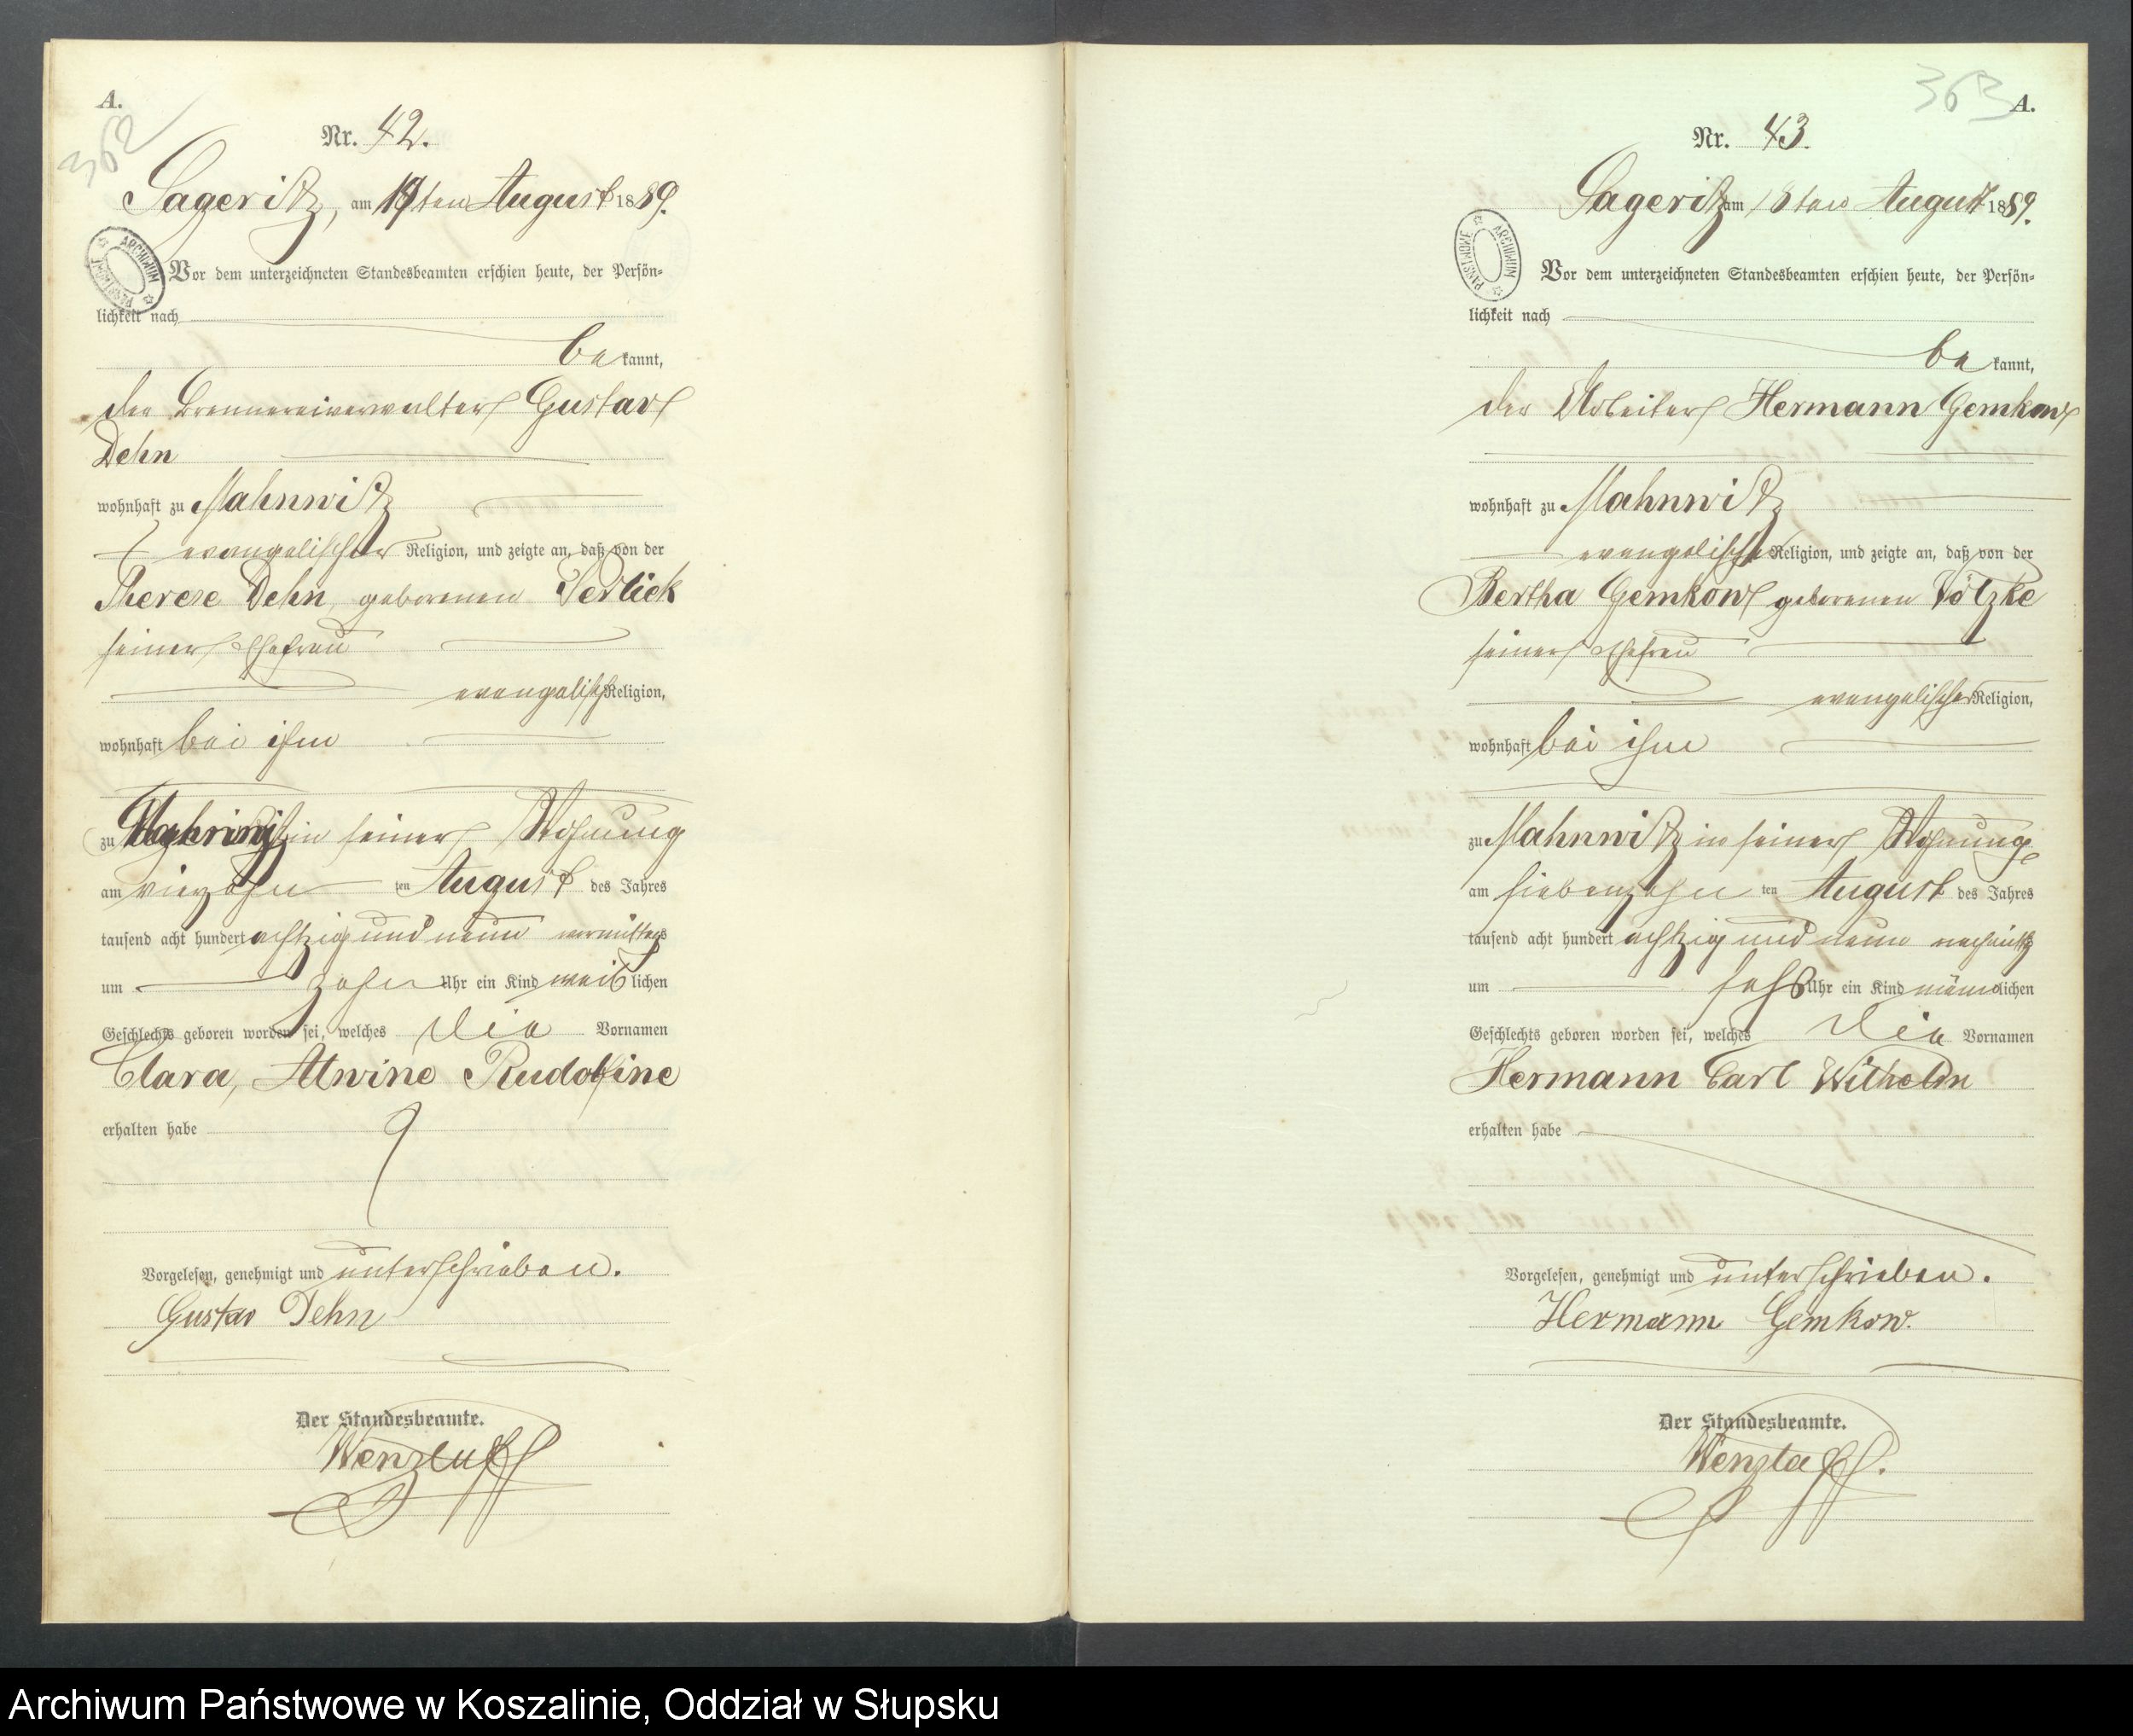 A.
362
Nr. 42.
Sageritz, am 17ten August 1889.
ARCHIWUM PAŃSTWOWE
Vor dem unterzeichneten Standesbeamten erschien heute, der Persön-
lichkeit nach
bekannt,
der Brennereiverwalter Gustav
Dehn
wohnhaft zu Mahnwitz
evangelischer Religion, und zeigte an, daß von der
Therese Dehn, geborenen
seiner Ehefrau
evangelischer Religion,
wohnhaft bei ihm
zu Mahnwitz in seiner Wohnung
am vierzehnten August des Jahres
tausend acht hundert achtzig und neun vormittags
um zehn Uhr ein Kind weiblichen
Geschlechts geboren worden sei, welches die Vornamen
Clara, Alwine Rudolfine
erhalten habe
Vorgelesen, genehmigt und unterschrieben.
Gustav Dehn
Der Standesbeamte.
Wenzlaff
363
A.
Nr. 43.
Sageritz am 18ten August 1889.
ARCHIWUM PAŃSTWOWE
Vor dem unterzeichneten Standesbeamten erschien heute, der Persön-
lichkeit nach
bekannt,
der Arbeiter Hermann Gemkow
wohnhaft zu Mahnwitz
evangelischer Religion, und zeigte an, daß von der
Bertha Gemkow geborenen Völzke
seiner Ehefrau
evangelischer Religion,
wohnhaft bei ihm
zu Mahnwitz in seiner Wohnung
am siebenzehnten August des Jahres
tausend acht hundert achtzig und neun nachmittags
um sechs Uhr ein Kind männlichen
Geschlechts geboren worden sei, welches die Vornamen
Hermann Carl Wilhelm
erhalten habe
Vorgelesen, genehmigt und unterschrieben.
Hermann Gemkow.
Der Standesbeamte.
Wenzlaff.
Archiwum Państwowe w Koszalinie, Oddział w Słupsku